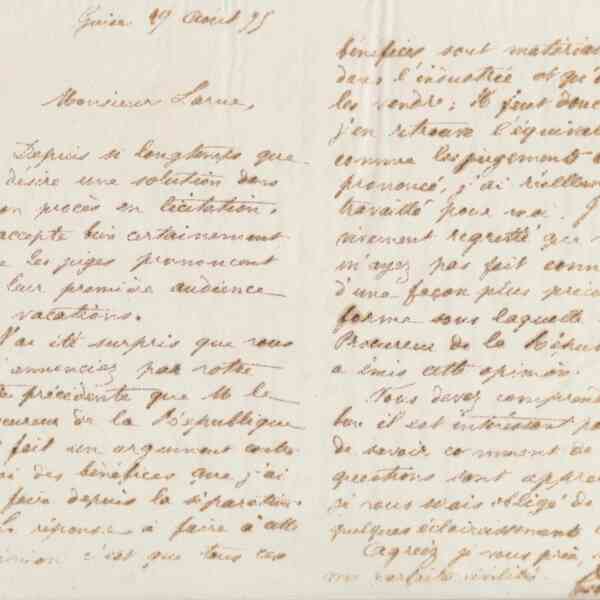 Guise 19 Août 75
Monsieur Larue,
Depuis si longtemps que
désire une solution dans
on procès en licitation,
accepte bien certainement
e les juges prononcent
leur première audience
vacations.
J'ai été surpris que vous
annonciez par votre
précédente que M le
cureur de la République
fait un argument contre
oi des bénéfices que j'ai
faire depuis la séparation.
réponse à faire à cette
pinion c'est que tous ces
bénéfices sont matérial
dans l'industrie et qu'o
les vendre; il faut donc
j'en retrouve l'équival
comme les jugements o
prononcé, j'ai réellem
travaillé pour moi. J
vivement regretté que v
m'ayez pas fait conn
d'une façon plus préci
forme sous laquelle
Procureur de la Répub
a émis cette opinion.
Vous devez comprend
bien il est intéressant po
de savoir comment de
questions sont appré
si vous serais obligé de
quelques éclaircissements
Agréez je vous prie,
mes parfaites civilités.